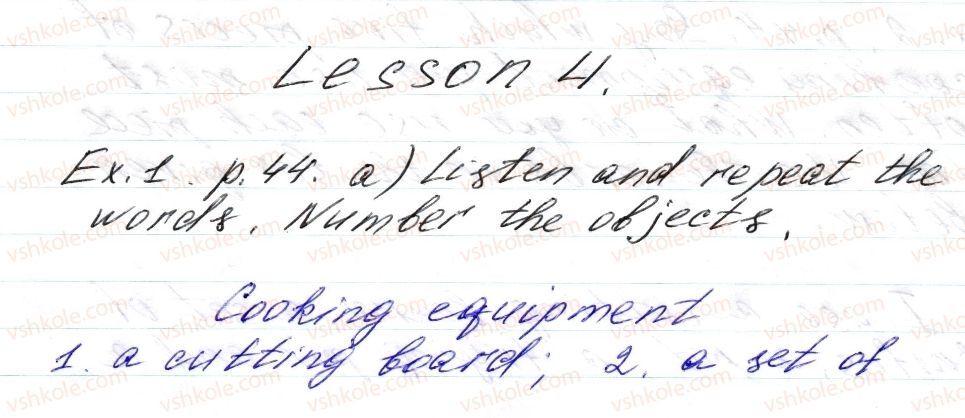 Lesson 4.
Ex. 1. p. 44. a) Listen and repeat the
words. Number the objects.
Cooking equipment
1. a cutting board; 2. a set of